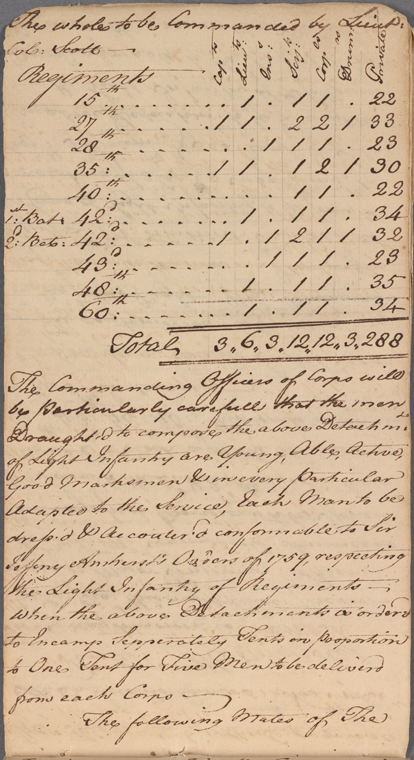 The whole to be Commanded by Lieut:
Col: Scott —
Regiments Capts Lieuts Ens: Serjts Corpls Drumrs Privates
15th . . . . . . . . . 1 . 1 1 . 22
27th . . . . . . . 1 1 . 2 2 1 33
28th . . . . . . . . . . 1 1 1 . 23
35th . . . . . . . 1 1 . 1 2 1 30
40th . . . . . . . . . . . 1 1 . 22
1st: Bat: 42d: . . . . . . . . 1 . 1 1 . 34
2d: Bat: 42d: . . . . . . 1 . 1 2 1 1 32
43d: . . . . . . . . . 1 1 1 . 23
48th: . . . . . . . . 1 . 1 1 . 35
60th: . . . . . . . . 1 . 1 1 . 34
Total 3,, 6,, 3,, 12,, 12,, 3,, 288
The Commanding Officers of Corps will
be particularly carefull that the men
Draught'd to compose the above Detachmt:
of Light Infantry are Young, Able, Active,
Good Marksmen & in every Particular
Adapted to the Service, Each Man to be
dress'd & Accouter'd conformable to Sir
Jeffery Amherst's Orders of 1759 respecting
the Light Infantry of Regiments —
When the above Detachments is order'd
to Incamp Seperately Tents in proportion
to One Tent for Five Men to be deliver'd
from each Corps —
The following Mates of The